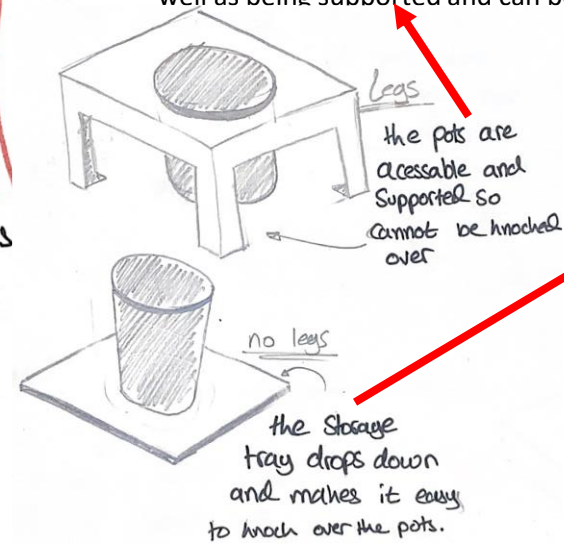 well as being supported and can b
Legs
the pots are
acessable and
Supported so
cannot be knocked
over
s
no legs
the Storage
tray drops down
and makes it easy
to knock over the pots.